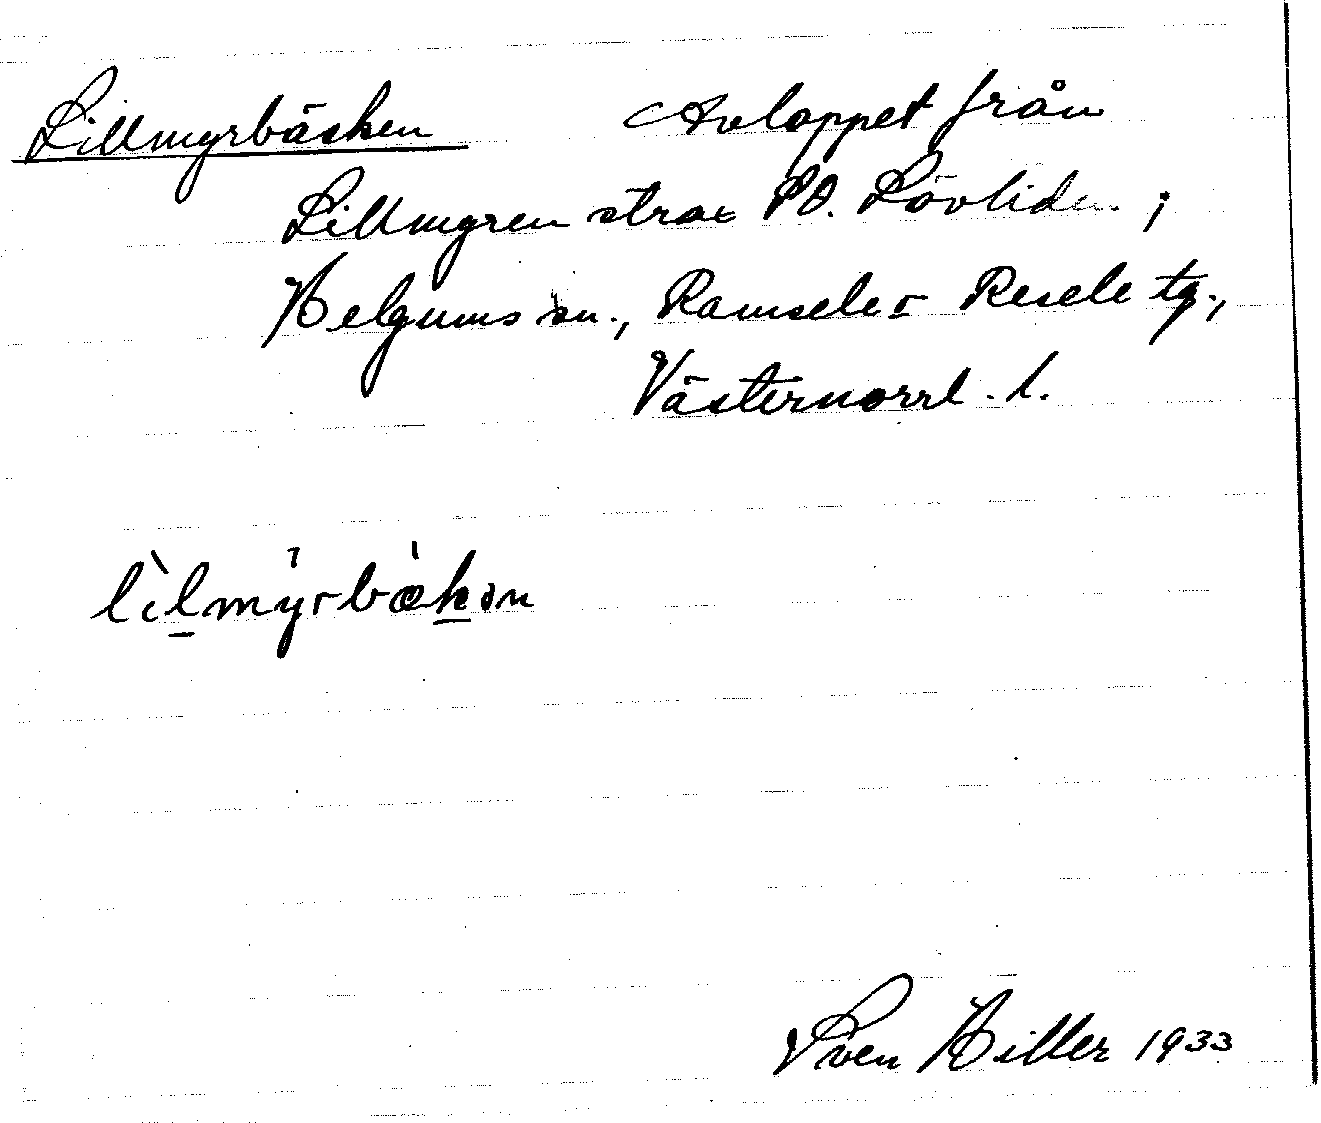 Lillmyrbäcken Avloppet från
Lillmyren strax SO. Lövliden;
Helgums sn., Ramsele o Resele tg.,
Västernorrl. l.
lìlmýrbækən
Sven Hiller 1933